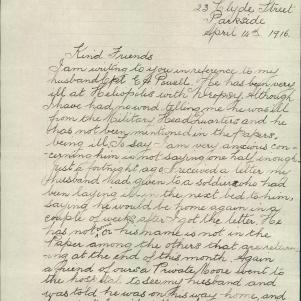 23 Clyde Street
Parkside
April 14th, 1916.
Kind Friends
I am writing to you in reference to my
husband Cpt E A Powell. He has been very
ill at Heliopolis with Pleurisy. Although
I have had no word telling me he was ill
from the Military Headquarters and he
has not been mentioned in the papers.
being ill, To say I am very anxious con-
cerning him is not saying one half enough.
Just a fortnight ago I received a letter my
husband had given to a soldier who had
been laying ill in the next bed to him,
saying he would be home again in a
couple of weeks after I got the letter. He
has not, or his name is not in the
Paper among the others that are return
ing at the end of this month. Again
a friend of ours a Private Moore went to
the hospital to see my husband and
was told he was on his way home, and